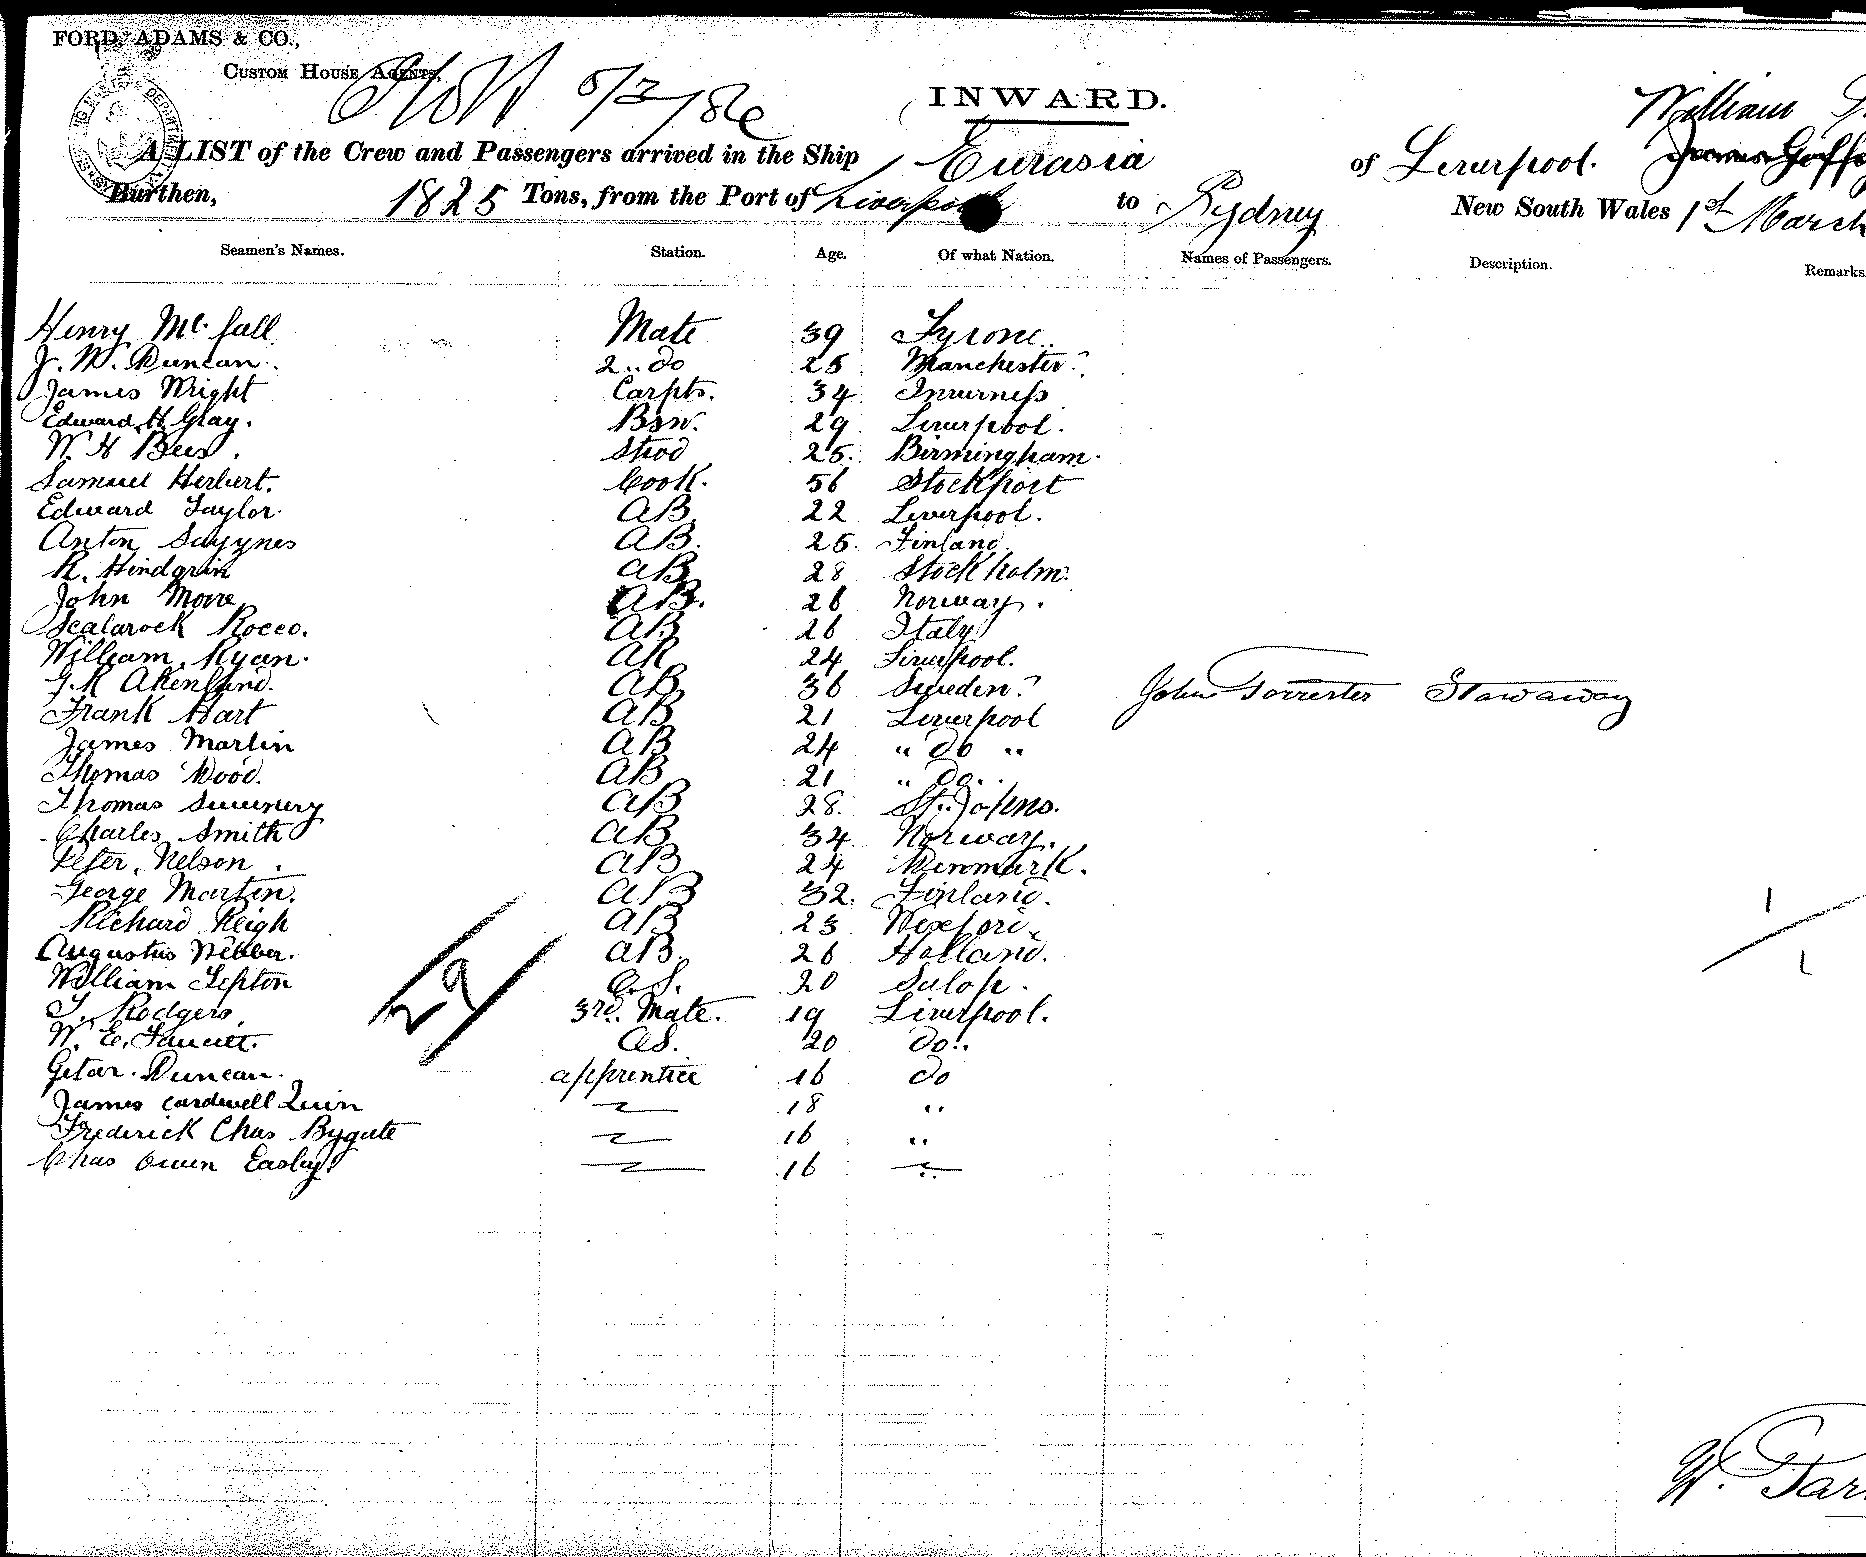 FORD, ADAMS & CO.,
CUSTOM HOUSE AGENTS.
5/3/86
INWARD.
William G.
A LIST of the Crew and Passengers arrived in the Ship Eurasia of Liverpool.
Burthen, 1825 Tons, from the Port of Liverpool to Sydney New South Wales 1st March
Seamen's Names. Station. Age. Of what Nation. Names of Passengers. Description. Remarks
Henry Mc.fall Mate 39 Tyrone.
J. W. Duncan. 2.. do 25 Manchester.
James Wright Carptr. 34 Inverness
Edward H Gray. Bsn. 29 Liverpool.
W. H Bees. Stwd 25. Birmingham.
Samuel Herbert. Cook. 56 Stockport
Edward Taylor. AB. 22 Liverpool.
Anton AB. 25. Finland.
R. Hindgrin AB 28 Stockholm.
John Moore AB. 26 Norway.
Scalarock Rocco. AB 26 Italy
William. Ryan. AB 24 Liverpool.
AB 36 Sweden.
John Forrester Stowaway
Frank Hart AB 21 Liverpool
James Martin AB 24 " do "
Thomas Wood. AB 21 " do..
Thomas AB 28. St. Johns.
Charles Smith AB 34 Norway.
Peter. Nelson. AB 24 Denmark.
George Martin. AB 32. Finland.
Richard Keigh AB 23 Wexford.
Augustus Webber. AB. 26 Holland.
William Lepton O.S. 20 Salop.
T. Rodgers. 3rd. Mate. 19 Liverpool.
W. E. Faucett. OS. 20 do..
Duncan. apprentice 16 do
James Cardwell Quin 18 "
Frederick Chas Bygate 16 "
Chas Owen Easby 16 "
29
1
1
W. Gar